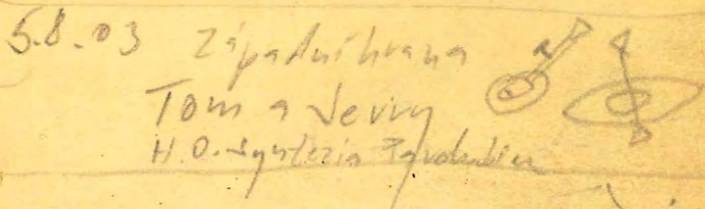 5.8.03 Západní hrana
Tom a Jerry
H.O. Syntezia Pardubice